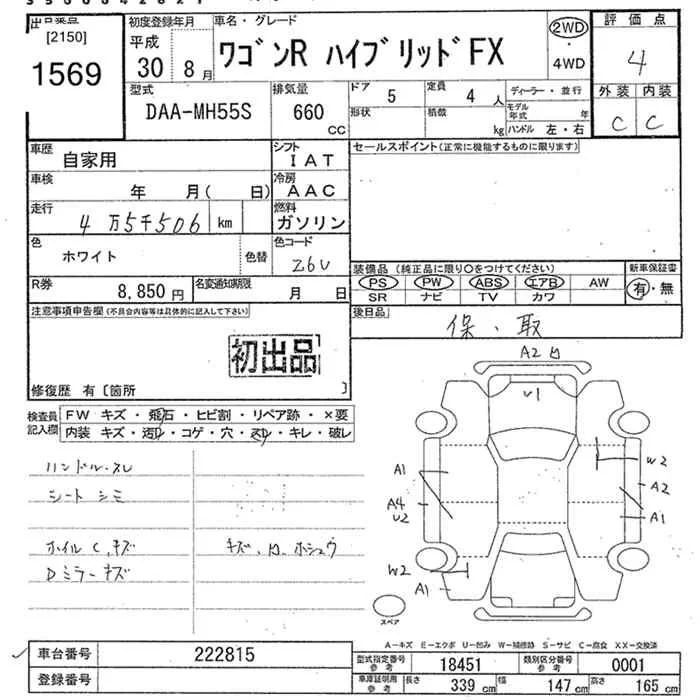 出品番号
[2150]
1569
初度登録年月
平成
30 8月
車名・グレード
ワゴンR ハイブリッドFX
2WD
・
4WD
評価点
4
外装 内装
C C
型式
DAA-MH55S
排気量
660
CC
ドア 5
定員 4 人
形状
積載 kg
ディーラー・並行
モデル年式 年
ハンドル 左・右
車歴
自家用
シフト
IAT
車検
年 月( 日)
冷房
AAC
走行
4万5千506 km
燃料
ガソリン
色
ホワイト
色替
色コード
Z6U
R券
8,850円
名変通知期限
月 日
セールスポイント(正常に機能するものに限ります)
装備品(純正品に限り○をつけてください)
PS PW ABS エアB AW
SR ナビ TV カワ
新車保証書
有・無
後日品
保・取
注意事項申告欄(不具合内容等は具体的に記入して下さい)
初出品
修復歴 有〔箇所 〕
検査員記入欄
FW キズ・飛石・ヒビ割・リペア跡・×要
内装 キズ・汚レ・コゲ・穴・スレ・キレ・破レ
ハンドル・スレ
シート シミ
ホイルC、キズ
Dミラーキズ
A2
U1
A1
A4
U2
W2
A1
W2
A2
A1
スペア
A−キズ E−エクボ U−凹み W−補修跡 S−サビ C−腐食 XX−交換済
車台番号
222815
登録番号
型式指定番号
参考
18451
類別区分番号
参考
0001
車庫証明用
参考
長さ 339 cm
幅 147 cm
高さ 165 cm